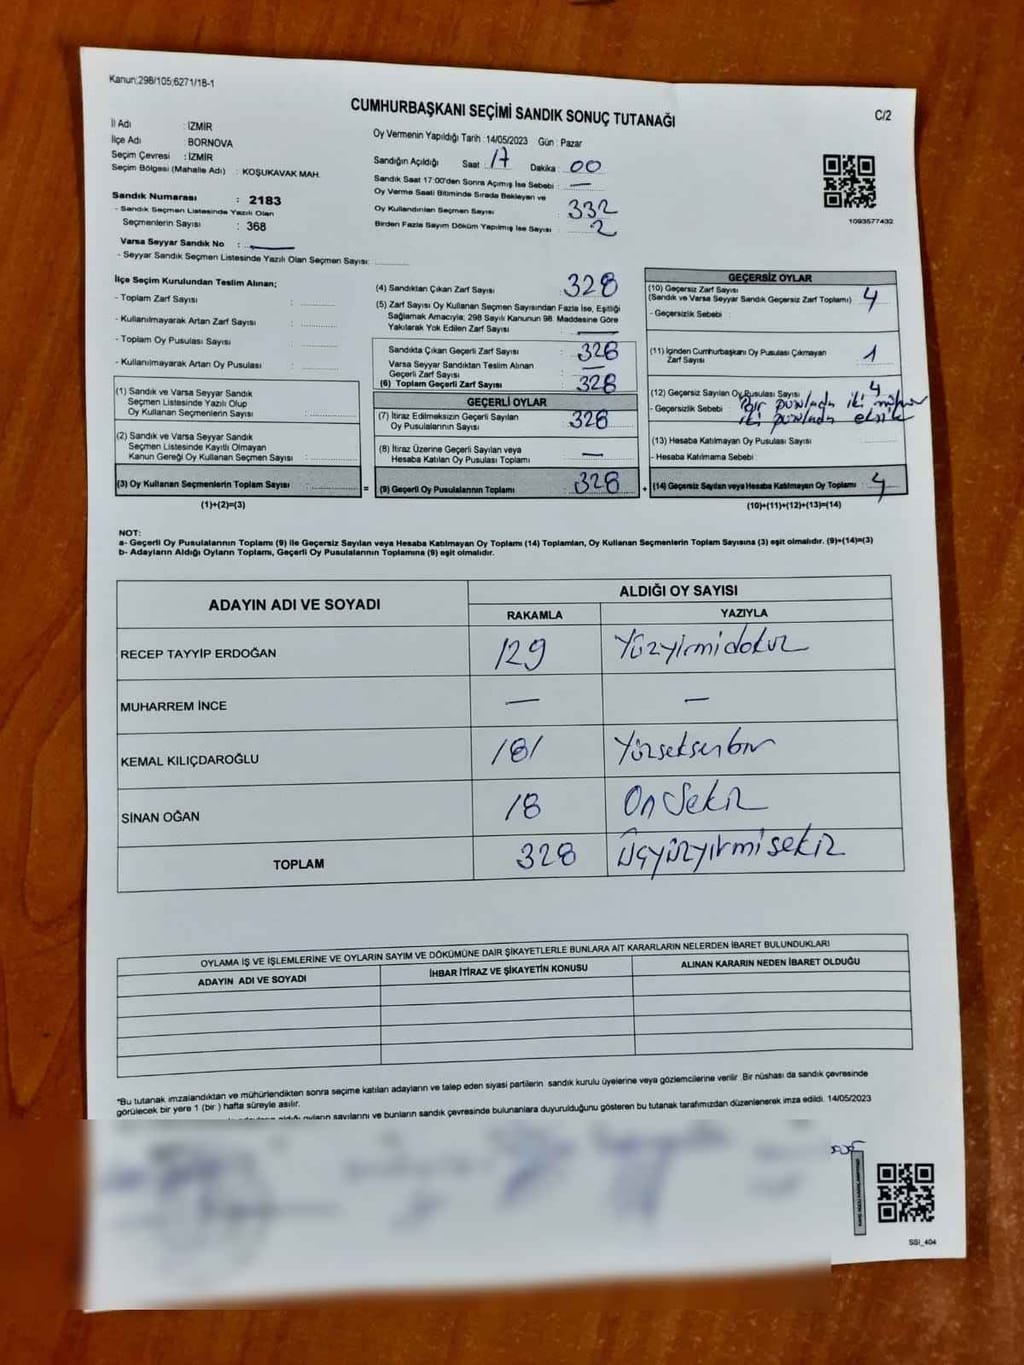 Kanun:298/105;6271/18-1
CUMHURBAŞKANI SEÇİMİ SANDIK SONUÇ TUTANAĞI
C/2
İl Adı : İZMİR
İlçe Adı : BORNOVA
Seçim Çevresi : İZMİR
Seçim Bölgesi (Mahalle Adı) : KOŞUKAVAK MAH.
Sandık Numarası : 2183
- Sandık Seçmen Listesinde Yazılı Olan
Seçmenlerin Sayısı : 368
Varsa Seyyar Sandık No :
- Seyyar Sandık Seçmen Listesinde Yazılı Olan Seçmen Sayısı:
Oy Vermenin Yapıldığı Tarih : 14/05/2023 Gün : Pazar
Sandığın Açıldığı Saat : 17 Dakika : 00
Sandık Saat 17:00'den Sonra Açımış İse Sebebi : —
Oy Verme Saati Bitiminde Sırada Bekleyen ve
Oy Kullandırılan Seçmen Sayısı : 332
Birden Fazla Sayım Döküm Yapılmış İse Sayısı : 2
1093577432
İlçe Seçim Kurulundan Teslim Alınan;
- Toplam Zarf Sayısı :
- Kullanılmayarak Artan Zarf Sayısı :
- Toplam Oy Pusulası Sayısı :
- Kullanılmayarak Artan Oy Pusulası :
(1) Sandık ve Varsa Seyyar Sandık
Seçmen Listesinde Yazılı Olup
Oy Kullanan Seçmenlerin Sayısı :
(2) Sandık ve Varsa Seyyar Sandık
Seçmen Listesinde Kayıtlı Olmayan
Kanun Gereği Oy Kullanan Seçmen Sayısı :
(3) Oy Kullanan Seçmenlerin Toplam Sayısı :
(1)+(2)=(3)
=
(4) Sandıktan Çıkan Zarf Sayısı : 328
(5) Zarf Sayısı Oy Kullanan Seçmen Sayısından Fazla İse, Eşitliği
Sağlamak Amacıyla; 298 Sayılı Kanunun 98. Maddesine Göre
Yakılarak Yok Edilen Zarf Sayısı : —
Sandıkta Çıkan Geçerli Zarf Sayısı : 328
Varsa Seyyar Sandıktan Teslim Alınan
Geçerli Zarf Sayısı : —
(6) Toplam Geçerli Zarf Sayısı : 328
GEÇERLİ OYLAR
(7) İtiraz Edilmeksizin Geçerli Sayılan
Oy Pusulalarının Sayısı : 328
(8) İtiraz Üzerine Geçerli Sayılan veya
Hesaba Katılan Oy Pusulası Toplamı : —
(9) Geçerli Oy Pusulalarının Toplamı : 328
+
GEÇERSİZ OYLAR
(10) Geçersiz Zarf Sayısı
(Sandık ve Varsa Seyyar Sandık Geçersiz Zarf Toplamı) : 4
- Geçersizlik Sebebi :
(11) İçinden Cumhurbaşkanı Oy Pusulası Çıkmayan
Zarf Sayısı : 1
(12) Geçersiz Sayılan Oy Pusulası Sayısı : 4
- Geçersizlik Sebebi : Bir pusulada iki mühür
iki pusulada eksik
(13) Hesaba Katılmayan Oy Pusulası Sayısı :
- Hesaba Katılmama Sebebi :
(14) Geçersiz Sayılan veya Hesaba Katılmayan Oy Toplamı : 4
(10)+(11)+(12)+(13)=(14)
NOT:
a- Geçerli Oy Pusulalarının Toplamı (9) ile Geçersiz Sayılan veya Hesaba Katılmayan Oy Toplamı (14) Toplamları, Oy Kullanan Seçmenlerin Toplam Sayısına (3) eşit olmalıdır. (9)+(14)=(3)
b- Adayların Aldığı Oyların Toplamı, Geçerli Oy Pusulalarının Toplamına (9) eşit olmalıdır.
ADAYIN ADI VE SOYADI ALDIĞI OY SAYISI
RAKAMLA YAZIYLA
RECEP TAYYİP ERDOĞAN 129 Yüzyirmidokuz
MUHARREM İNCE — —
KEMAL KILIÇDAROĞLU 181 Yüzseksenbir
SİNAN OĞAN 18 On Sekiz
TOPLAM 328 Üçyüzyirmisekiz
OYLAMA İŞ VE İŞLEMLERİNE VE OYLARIN SAYIM VE DÖKÜMÜNE DAİR ŞİKAYETLERLE BUNLARA AİT KARARLARIN NELERDEN İBARET BULUNDUKLARI
ADAYIN ADI VE SOYADI İHBAR İTİRAZ VE ŞİKAYETİN KONUSU ALINAN KARARIN NEDEN İBARET OLDUĞU
*Bu tutanak imzalandıktan ve mühürlendikten sonra seçime katılan adayların ve talep eden siyasi partilerin sandık kurulu üyelerine veya gözlemcilerine verilir. Bir nüshası da sandık çevresinde
görülecek bir yere 1 (bir ) hafta süreyle asılır.
aldığı oyların sayılarını ve bunların sandık çevresinde bulunanlara duyurulduğunu gösteren bu tutanak tarafımızdan düzenlenerek imza edildi. 14/05/2023
SSI_404